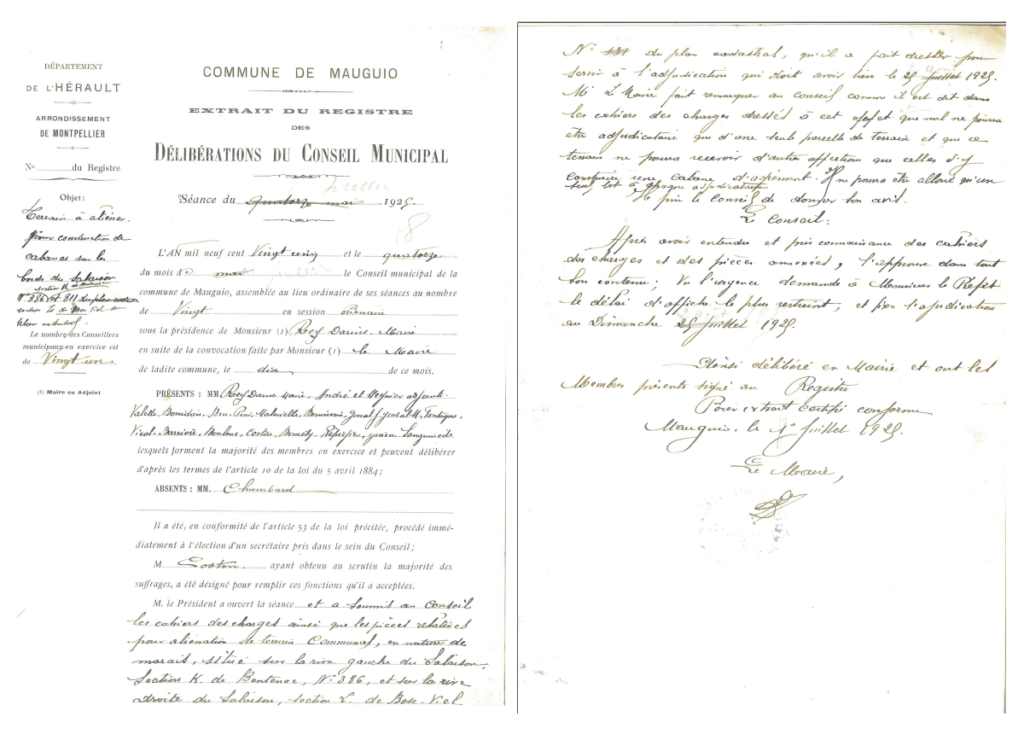 DÉPARTEMENT
DE L'HÉRAULT
ARRONDISSEMENT
DE MONTPELLIER
N° du Registre
Objet:
Terrain à aliéner
pour construction de
cabanes sur les
bords du Salaison
Le nombre des Conseillers
municipaux en exercice est
de Vingt un
(1) Maire ou Adjoint
COMMUNE DE MAUGUIO
EXTRAIT DU REGISTRE
DES
DÉLIBÉRATIONS DU CONSEIL MUNICIPAL
Séance du quatorze mai 1925
L'AN mil neuf cent Vingt cinq et le quatorze
du mois de mai le Conseil municipal de la
commune de Mauguio, assemblée au lieu ordinaire de ses séances au nombre
de Vingt en session ordinaire
sous la présidence de Monsieur (1) Rey Daunis, Maire
en suite de la convocation faite par Monsieur (1) le Maire
de ladite commune, le dix de ce mois.
PRÉSENTS : MM. Maire, André et adjoints
lesquels forment la majorité des membres en exercice et peuvent délibérer
d'après les termes de l'article 10 de la loi du 5 avril 1884;
ABSENTS : MM. Chambard
Il a été, en conformité de l'article 53 de la loi précitée, procédé immé-
diatement à l'élection d'un secrétaire pris dans le sein du Conseil;
M Coston ayant obtenu au scrutin la majorité des
suffrages, a été désigné pour remplir ces fonctions qu'il a acceptées.
M. le Président a ouvert la séance et a soumis au Conseil
les cahiers des charges ainsi que les pièces relatives
pour aliénation de terrain Communal, en nature de
marais, situé sur la rive gauche du Salaison,
Section K. de Bentenac, N° 386, et sur la rive
droite du Salaison, section L. de Bosc Viel
N° du plan cadastral, qu'il a fait dresser pour
servir à l'adjudication qui doit avoir lieu le 25 Juillet 1925.
Mr Le Maire fait remarquer au conseil comme il est dit dans
les cahiers des charges dressés à cet effet que nul ne pourra
être adjudicataire que d'une seule parcelle de terrain et que ce
terrain ne pourra recevoir d'autre affectation que celles d'y
construire une cabane d'agrément. Il ne pourra être alloué qu'un
seul lot à chaque adjudicataire
Il prie le Conseil de donner son avis.
Le Conseil:
Après avoir entendu et pris connaissance des cahiers
des charges et des pièces annexées, l'approuve dans tout
son contenu; Vu l'urgence demande à Monsieur le Préfet
le délai d'affiche le plus restreint, et fixe l'adjudication
au Dimanche 25 Juillet 1925.
Ainsi délibéré en Mairie et ont les
Membres présents signé au Registre
Pour extrait certifié conforme
Mauguio, le Juillet 1925.
Le Maire,